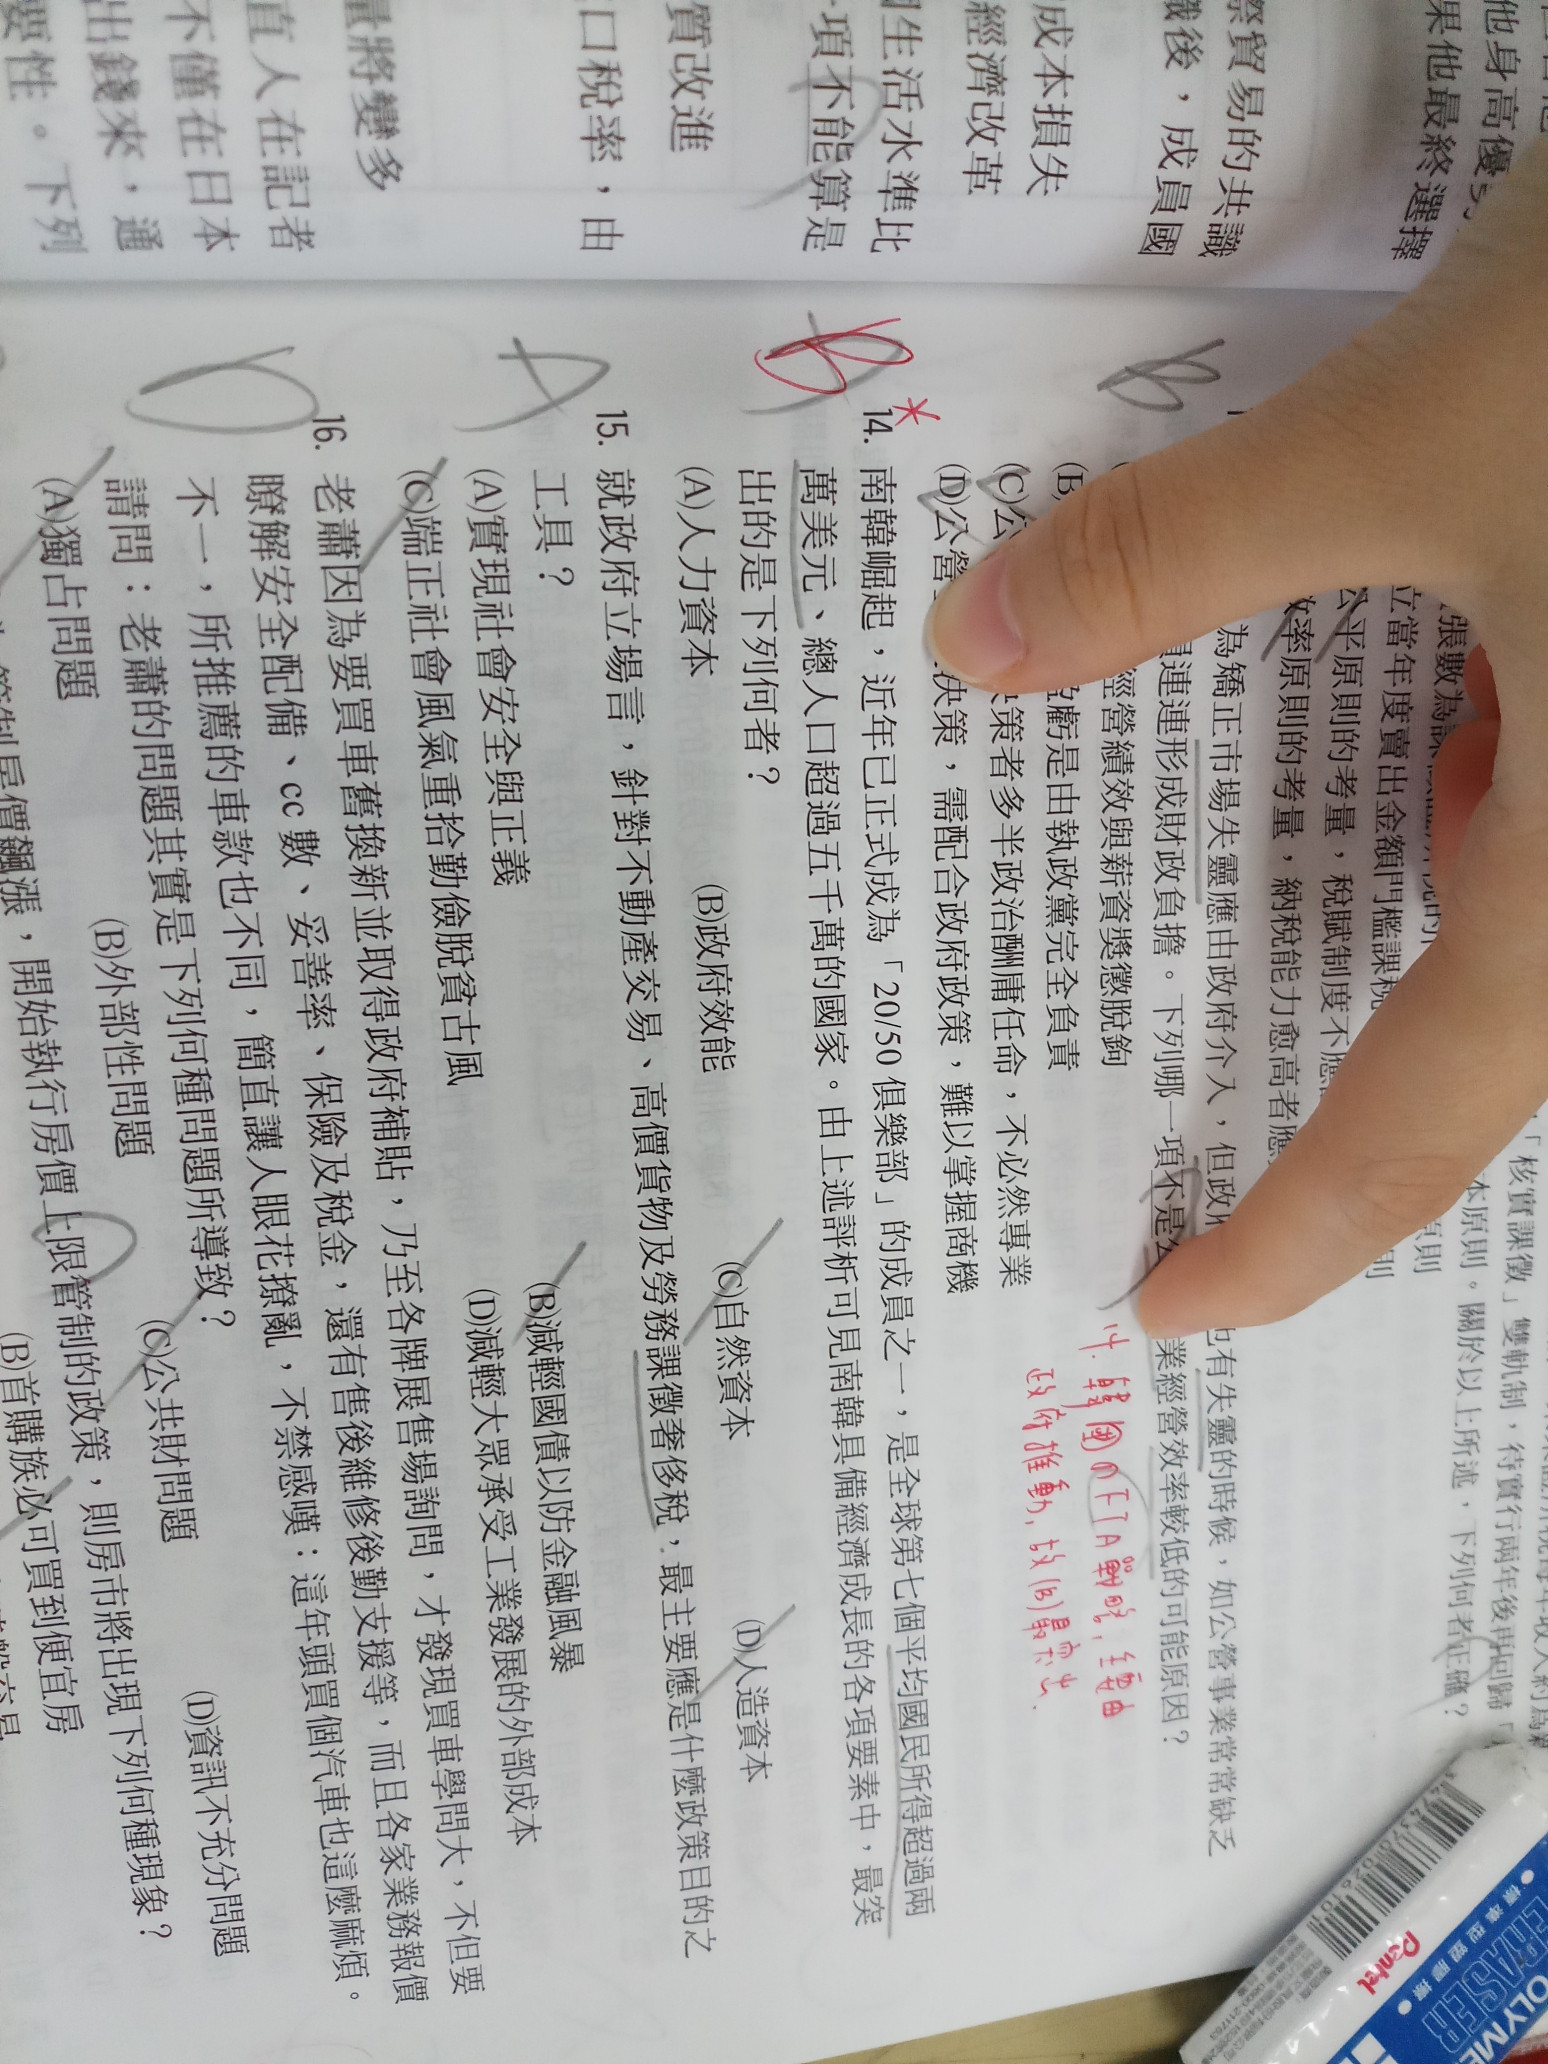 他身高優
果他最終選擇
際貿易的共識
織後，成員國
成本損失
經濟改革
生活水準比
項不能算是
質改進
口稅率，由
量將變多
直人在記者
不僅在日本
出錢來，通
要性。下列
「核實課徵」雙軌制，待實行兩年後再回歸「
本原則。關於以上所述，下列何者正確？
原則
張數為課
立當年度賣出金額門檻課稅
則
公平原則的考量，稅賦制度不應
效率原則的考量，納稅能力愈高者應
為矯正市場失靈應由政府介入，但政府也有失靈的時候，如公營事業常常缺乏
連連形成財政負擔。下列哪一項不是公業經營效率較低的可能原因？
經營績效與薪資獎懲脫鉤
(B)盈虧是由執政黨完全負責
(C)公決策者多半政治酬庸任命，不必然專業
(D)公營決策，需配合政府政策，難以掌握商機
B
14. 韓國的FTA戰略，主要由
政府推動，故(B)最突出.
B
* 14. 南韓崛起，近年已正式成為「20/50 俱樂部」的成員之一，是全球第七個平均國民所得超過兩
萬美元、總人口超過五千萬的國家。由上述評析可見南韓具備經濟成長的各項要素中，最突
出的是下列何者？
(A)人力資本 (B)政府效能 (C)自然資本 (D)人造資本
A
15. 就政府立場言，針對不動產交易、高價貨物及勞務課徵奢侈稅，最主要應是什麼政策目的之
工具？
(A)實現社會安全與正義 (B)減輕國債以防金融風暴
(C)端正社會風氣重拾勤儉脫貧古風 (D)減輕大眾承受工業發展的外部成本
D
16. 老蕭因為要買車舊換新並取得政府補貼，乃至各牌展售場詢問，才發現買車學問大，不但要
瞭解安全配備、cc 數、妥善率、保險及稅金，還有售後維修後勤支援等，而且各家業務報價
不一，所推薦的車款也不同，簡直讓人眼花撩亂，不禁感嘆：這年頭買個汽車也這麼麻煩。
請問：老蕭的問題其實是下列何種問題所導致？
(A)獨占問題 (B)外部性問題 (C)公共財問題 (D)資訊不充分問題
管制房價飆漲，開始執行房價上限管制的政策，則房市將出現下列何種現象？
(B)首購族必可買到便宜房
Pentel
標準型塑膠擦
ERASER